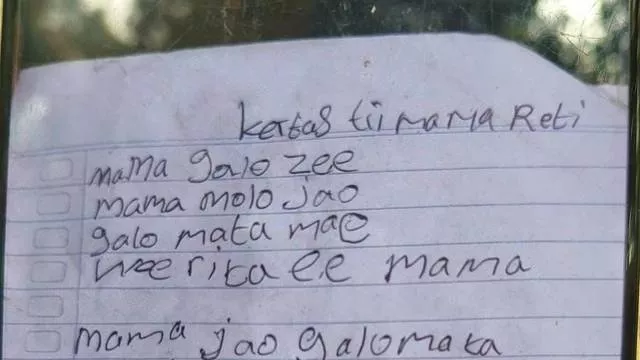 kertas tii mama Reti
mama galo zee
mama molo jao
galo mata mae
wee rita ee mama
mama jao galo mata